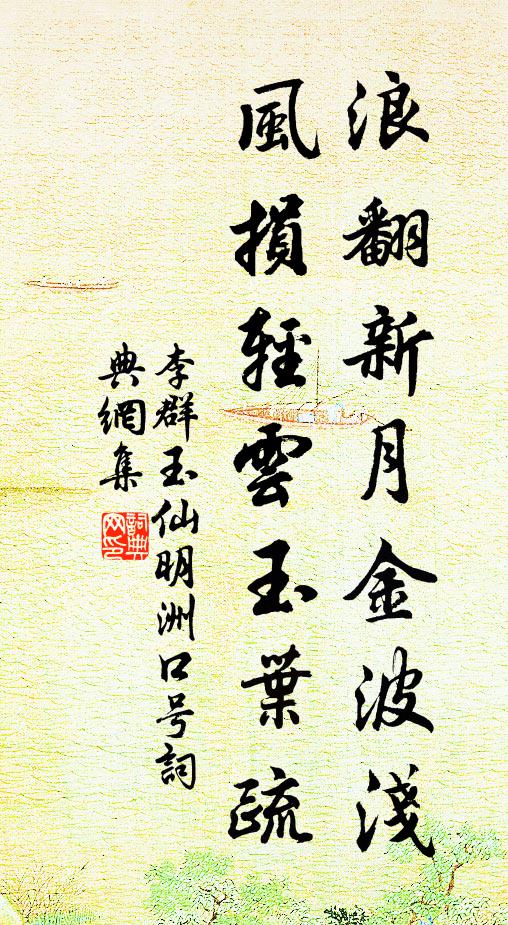 浪翻新月金波淺
風損輕雲玉葉疏
李群玉仙明洲口号詞
典網集
詞典网印